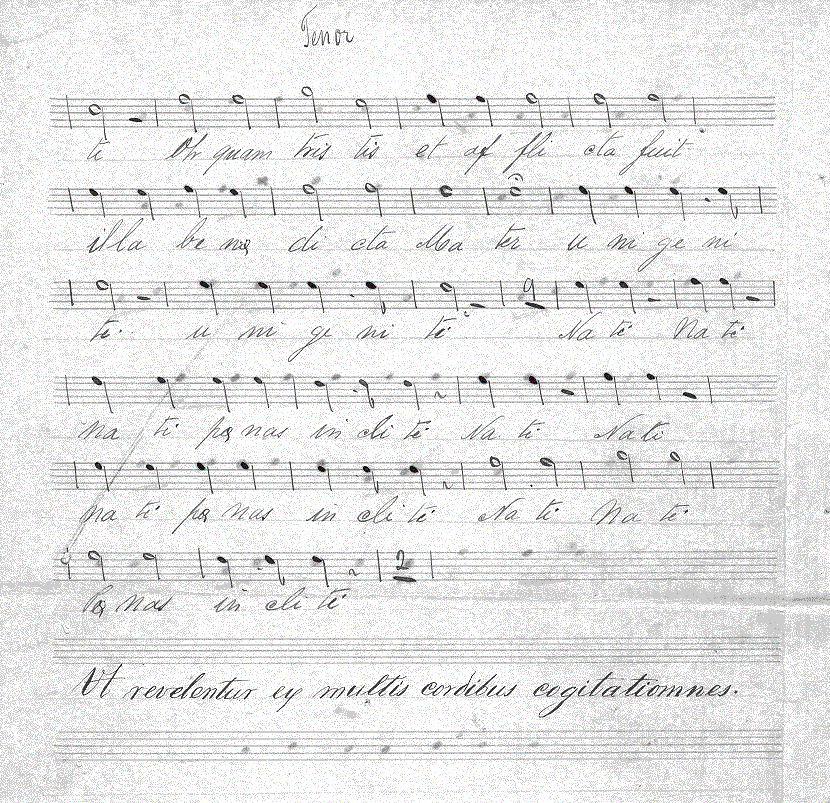 Tenor
ti Oh quam tris tis et af fli cta fuit
illa be næ di cta Ma ter u ni ge ni
9
ti. u ni ge ni ti Na ti Na ti
na ti pœ nas in cli ti Na ti Na ti
na ti pœ nas in cli ti Na ti Na ti
2
Pœ nas in cli ti
Ut revelentur ex multis cordibus cogitatiomnes.